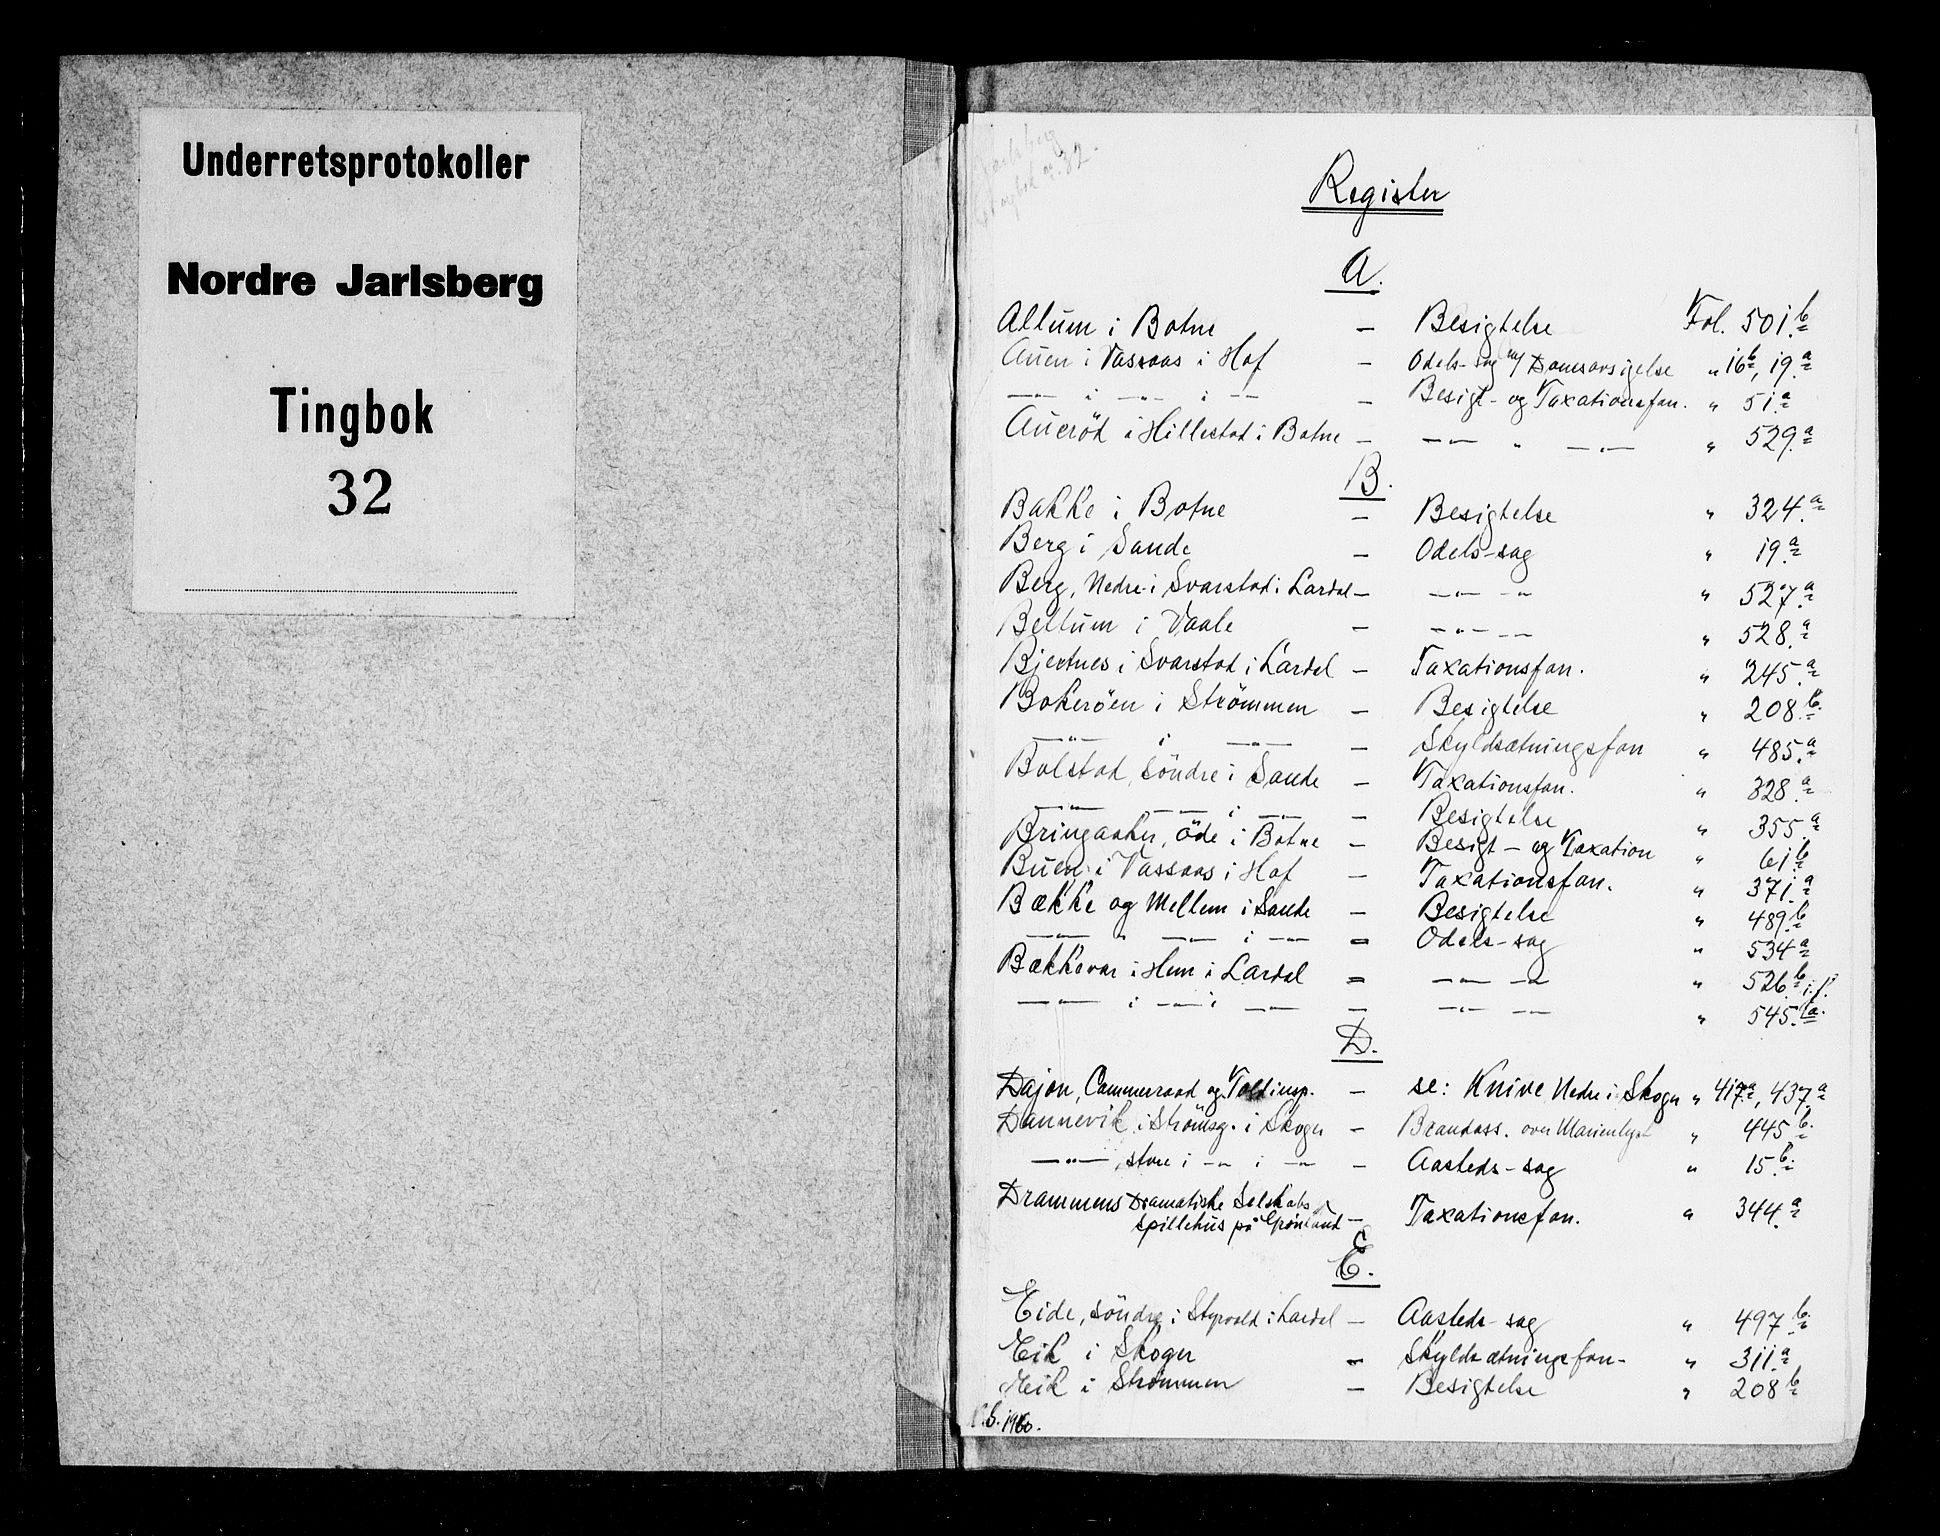 Underretsprotokoller
Nordre Jarlsberg
Tingbok
32
Jarlsberg
Tingbok nr. 32.
Register
A.
Allum i Botne — Besigtelse Fol. 501.b
Auen i Vassaas i Hof — Odels-sag m/ Domsavsigelse " 16b, 19.a
—"— i —"— i —"— — Besigt- og Taxationsfon. " 51.a
Aueröd i Hillestad i Botne — —"— " —"— " 529.a
B.
Bakke i Botne — Besigtelse " 324.a
Berg i Sande — Odels-sag " 19.a
Berg, Nedre i Svarstad i Lardal — —"— —"— " 527.a
Bettum i Vaale — —"— —"— " 528.a
Bjertnes i Svarstad i Lardal — Taxationsfon. " 245.a
Bokeröen i Strömmen — Besigtelse " 208.b
—"— i —"— — Skyldsætningsfon " 485.a
Bolstad, söndre i Sande — Taxationsfon. " 328.a
—"— —"— i —"— — Besigtelse " 355.a
Bringaaker, öde i Botne — Besigt- og Taxation " 61.b
Buen i Vassaas i Hof — Taxationsfon. " 371.a
Bække og Mellem i Sande — Besigtelse " 489.b
—"— " —"— i —"— — Odels-sag " 534.a
Bækkevar i Hem i Lardal — —"— —"— " 526.b i.f.
—"— i —"— i —"— — —"— —"— " 545.a
D.
Dajon, Cammerraad og Toldinsp. — se: Knive Nedre i Skoger " 417.a, 437.a
Dannevik i Strömsg. i Skoger — Brandass. over Marienlyst " 445.b
—"—, store i —"— i —"— — Aasteds-sag " 15.b
Drammens Dramatiske Selskabs
Spillehus på Grønland — Taxationsfon. " 344.a
E.
Eide, söndre i Styrvold i Lardal — Aasteds-sag " 497.b
Eik i Skoger — Skyldsætningsfon- " 311.a
Eik i Strömmen — Besigtelse " 208.b
1960.